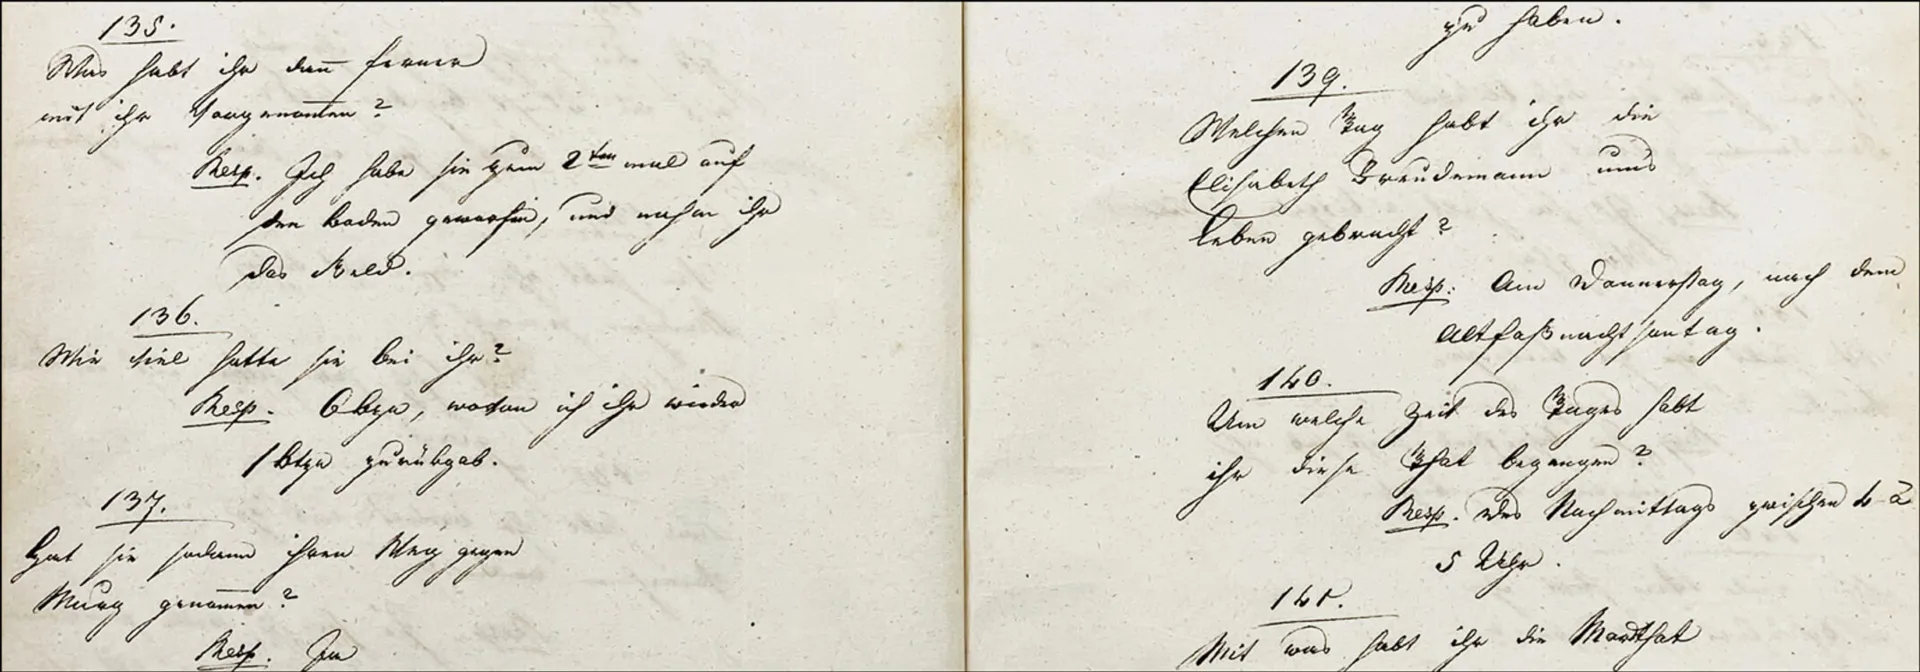 135.
Was habt ihr dann ferner
mit ihr vorgenom̄en?
Resp. Ich habe sie zum 2ten mal auf
den boden geworfen, und nahm ihr
das Geld.
136.
Wie viel hatte sie bei ihr?
Resp. 6 bzn, wovon ich ihr wieder
1 btzn zurükgab.
137.
Hat sie sodann ihren Weg gegen
Murg genom̄en?
Resp. Ja
zu haben.
139.
Welchen Tag habt ihr die
Elisabeth Breudemann ums
Leben gebracht?
Resp: Am Donnerstag, nach dem
altfaßnachtsontag.
140.
Um welche Zeit des Tages habt
ihr diese That begangen?
Resp. des Nachmittags zwischen 4 -
5 Uhr.
141.
Mit was habt ihr die Mordthat